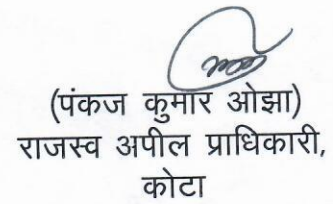 (पंकज कुमार ओझा)
राजस्व अपील प्राधिकारी,
कोटा